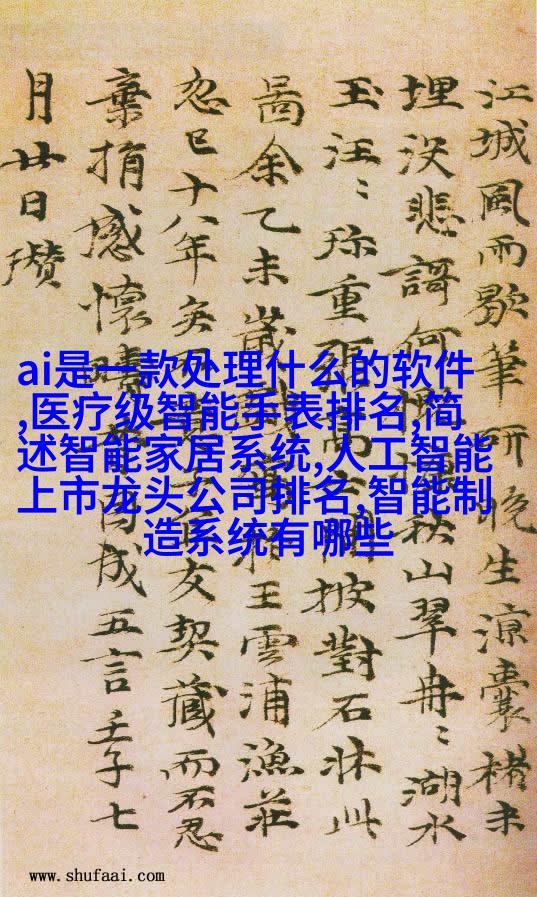 江城風雨歇筆研晚生涼囊楮未
埋没悲謌何秋山翠冉〻湖水
玉汪〻珎重張高士閒披對石牀此
啚余乙未歲戲王雲浦漁莊
忽已十八年矣不友契藏而不忍
棄捐感懷疇因成五言壬子七
月廿日瓚
ai是一款处理什么的软件
,医疗级智能手表排名,简
述智能家居系统,人工智能
上市龙头公司排名,智能制
造系统有哪些
www.shufaai.com